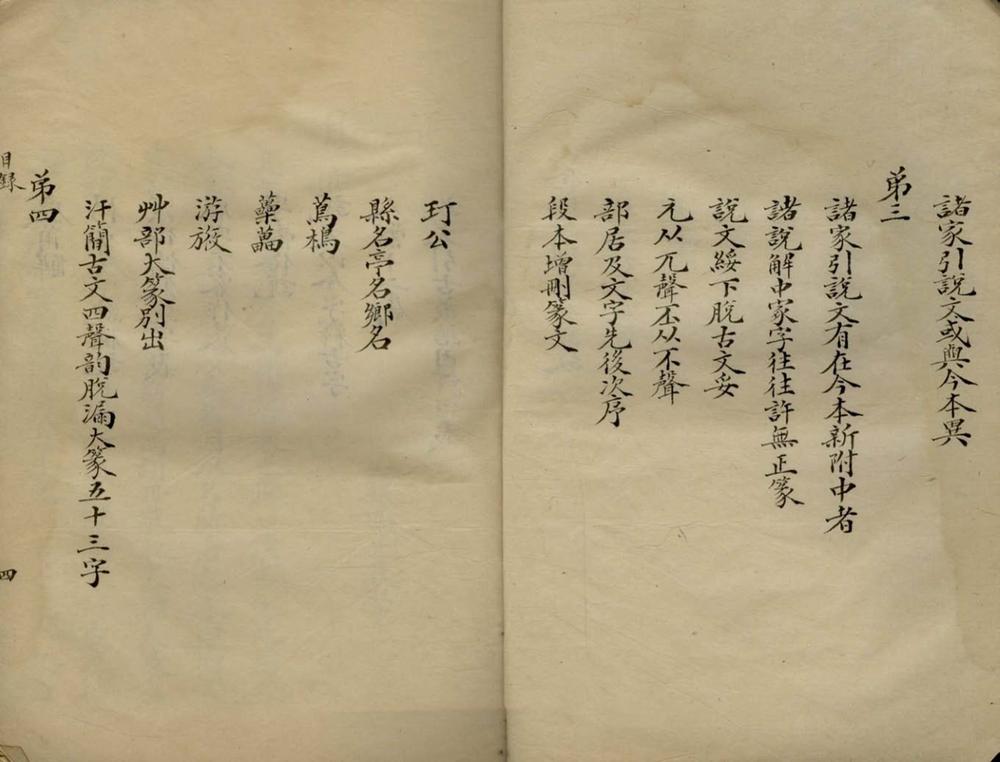 諸家引說文或與今本異
弟三
諸家引說文有在今本新附中者
諸說解中家字往往許無正篆
說文綏下脫古文妥
元从兀聲丕从不聲
部居及文字先後次序
段本增刪篆文
玎公
縣名亭名鄉名
蔦樢
藁藟
游㳺
艸部大篆別出
汗簡古文四聲韵脫漏大篆五十三字
弟四
目錄
四